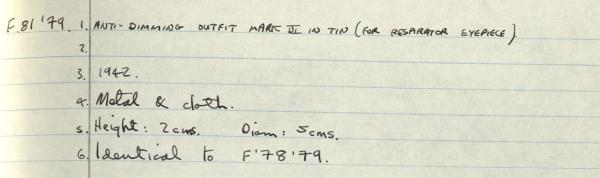 F.81'79. 1. ANTI-DIMMING OUTFIT MARK VI IN TIN (FOR RESPIRATOR EYEPIECE).
2.
3. 1942.
4. Metal & cloth.
5. Height: 2cms. Diam: 5cms.
6. Identical to F'78'79.